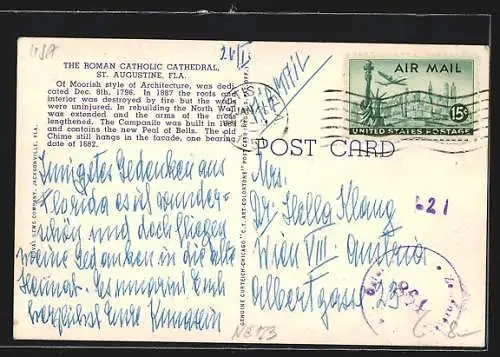 USA
THE ROMAN CATHOLIC CATHEDRAL,
ST. AUGUSTINE, FLA.
Of Moorish style of Architecture, was dedi-
cated Dec. 8th, 1796. In 1887 the roofs and
interior was destroyed by fire but the walls
were uninjured. In rebuilding the North Wall
was extended and the arms of the cross
lengthened. The Campanile was built in
and contains the new Peal of Bells. The old
Chime still hangs in the facade, one bearing
date of 1682.
Innigstes Gedenken aus
Florida es ist wunder-
schön und doch fliegen
meine Gedanken in die alte
Heimat. Es umarmt Euch
herzlichst Eure
NEWS COMPANY, JACKSONVILLE, FLA.
GENUINE CURTEICH-CHICAGO "C.T. ART-COLORTONE" POST CARD
AIR MAIL
15¢
UNITED STATES POSTAGE
POST CARD
Mrs.
Dr. Stella Klang
Wien VIII. Austria
Albertgasse 23
621